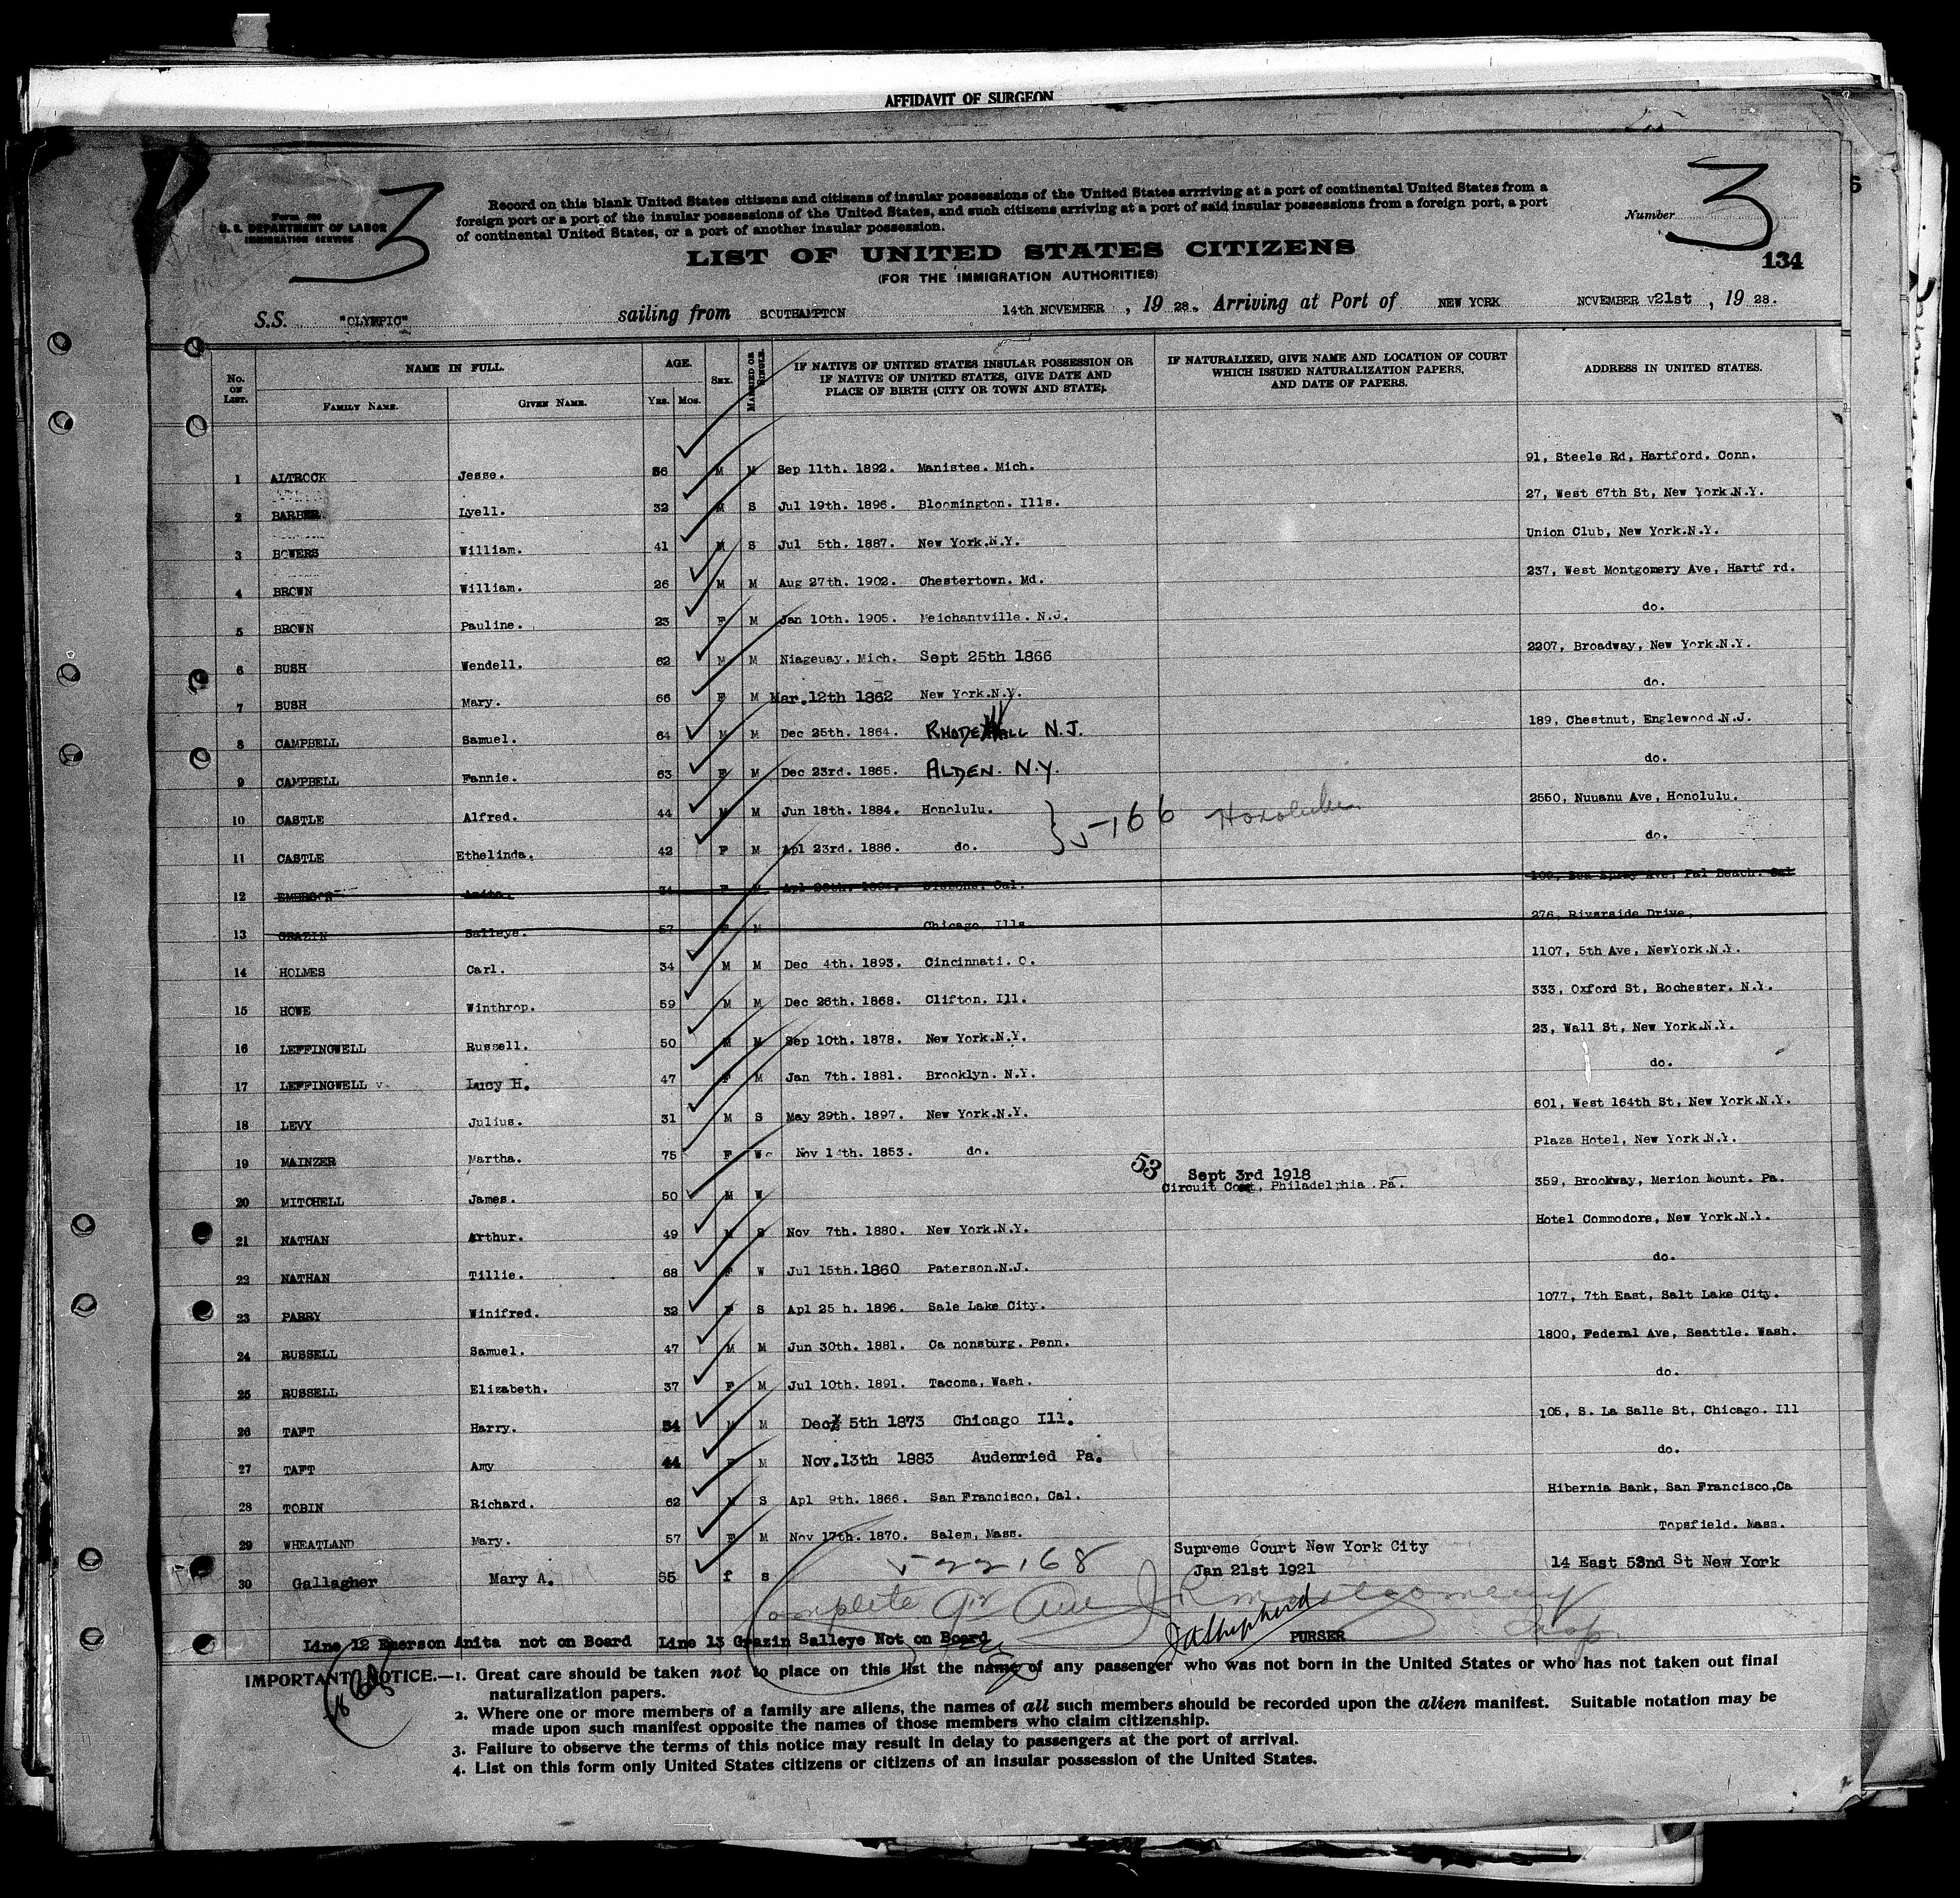 AFFIDAVIT OF SURGEON
3
3
Form 630
U. S. DEPARTMENT OF LABOR
IMMIGRATION SERVICE
Record on this blank United States citizens and citizens of insular possessions of the United States arrriving at a port of continental United States from a
foreign port or a port of the insular possessions of the United States, and such citizens arriving at a port of said insular possessions from a foreign port, a port
of continental United States, or a port of another insular possession.
Number
LIST OF UNITED STATES CITIZENS
134
(FOR THE IMMIGRATION AUTHORITIES)
S.S. "OLYMPIC" sailing from SOUTHAMPTON 14th NOVEMBER , 19 28. Arriving at Port of NEW YORK NOVEMBER 21st , 19 28.
No. on List. NAME IN FULL. AGE. Sex. Married or Single. IF NATIVE OF UNITED STATES INSULAR POSSESSION OR IF NATIVE OF UNITED STATES, GIVE DATE AND PLACE OF BIRTH (CITY OR TOWN AND STATE). IF NATURALIZED, GIVE NAME AND LOCATION OF COURT WHICH ISSUED NATURALIZATION PAPERS, AND DATE OF PAPERS. ADDRESS IN UNITED STATES.
Family Name. Given Name. Yrs. Mos.
1 ALTROCK Jesse. 36 M M Sep 11th. 1892. Manistee. Mich. 91, Steele Rd, Hartford. Conn.
2 BARBER Lyell. 32 M S Jul 19th. 1896. Bloomington. Ills. 27, West 67th St, New York.N.Y.
3 BOWERS William. 41 M S Jul 5th. 1887. New York.N.Y. Union Club, New York.N.Y.
4 BROWN William. 26 M M Aug 27th. 1902. Chestertown. Md. 237, West Montgomery Ave, Hartf rd.
5 BROWN Pauline. 23 F M Jan 10th. 1905. Meichantville. N.J. do.
6 BUSH Wendell. 62 M M Niageuay. Mich. Sept 25th 1866 2207, Broadway, New York.N.Y.
7 BUSH Mary. 66 F M Mar.12th 1862 New York.N.Y. do.
8 CAMPBELL Samuel. 64 M M Dec 25th. 1864. RHODE HALL N.J. 189, Chestnut, Englewood.N.J.
9 CAMPBELL Fannie. 63 F M Dec 23rd. 1865. ALDEN. N.Y. do.
10 CASTLE Alfred. 44 M M Jun 18th. 1884. Honolulu. 5-166 Honolulu 2550, Nuuanu Ave, Honolulu.
11 CASTLE Ethelinda. 42 F M Apl 23rd. 1886. do. do.
12 EMERSON Anita. 34 F Cal.
13 GRAZIN Salleye. 57 F M Chicago, Ills. 276, Riverside Drive,
14 HOLMES Carl. 34 M M Dec 4th. 1893. Cincinnati. O. 1107, 5th Ave, NewYork.N.Y.
15 HOWE Winthrop. 59 M M Dec 26th. 1868. Clifton. Ill. 333, Oxford St, Rochester. N.Y.
16 LEFFINGWELL Russell. 50 M M Sep 10th. 1878. New York.N.Y. 23, Wall St, New York.N.Y.
17 LEFFINGWELL Lucy H. 47 F M Jan 7th. 1881. Brooklyn. N.Y. do.
18 LEVY Julius. 31 M S May 29th. 1897. New York.N.Y. 601, West 164th St, New York.N.Y.
19 MAINZER Martha. 75 F W Nov 14th. 1853. do. Plaza Hotel, New York.N.Y.
53 Sept 3rd 1918
20 MITCHELL James. 50 M W Circuit Court, Philadelphia Pa. 359, Brookway, Merion Mount. Pa.
21 NATHAN Arthur. 49 M S Nov 7th. 1880. New York.N.Y. Hotel Commodore, New York.N.Y.
22 NATHAN Tillie. 68 F W Jul 15th.1860 Paterson.N.J. do.
23 PARRY Winifred. 32 F S Apl 25 h. 1896. Sale Lake City. 1077, 7th East, Salt Lake City.
24 RUSSELL Samuel. 47 M M Jun 30th. 1881. Ca nonsburg. Penn. 1800, Federal Ave, Seattle. Wash.
25 RUSSELL Elizabeth. 37 F M Jul 10th. 1891. Tacoma, Wash. do.
26 TAFT Harry. 54 M M Dec 5th 1873 Chicago Ill. 105, S. La Salle St, Chicago. Ill
27 TAFT Amy 44 F M Nov.13th 1883 Audenried Pa. do.
28 TOBIN Richard. 62 M S Apl 9th. 1866. San Francisco, Cal. Hibernia Bank, San Francisco,Ca
29 WHEATLAND Mary. 57 F M Nov 17th. 1870. Salem, Mass. Topsfield. Mass.
Supreme Court New York City
30 Gallagher Mary A. 55 f S Jan 21st 1921 14 East 52nd St New York
Complete
Line 12 Emerson Anita not on Board Line 13 Grazin Salleye Not on Board PURSER
IMPORTANT NOTICE.—1. Great care should be taken not to place on this list the name of any passenger who was not born in the United States or who has not taken out final
naturalization papers.
2. Where one or more members of a family are aliens, the names of all such members should be recorded upon the alien manifest. Suitable notation may be
made upon such manifest opposite the names of those members who claim citizenship.
3. Failure to observe the terms of this notice may result in delay to passengers at the port of arrival.
4. List on this form only United States citizens or citizens of an insular possession of the United States.